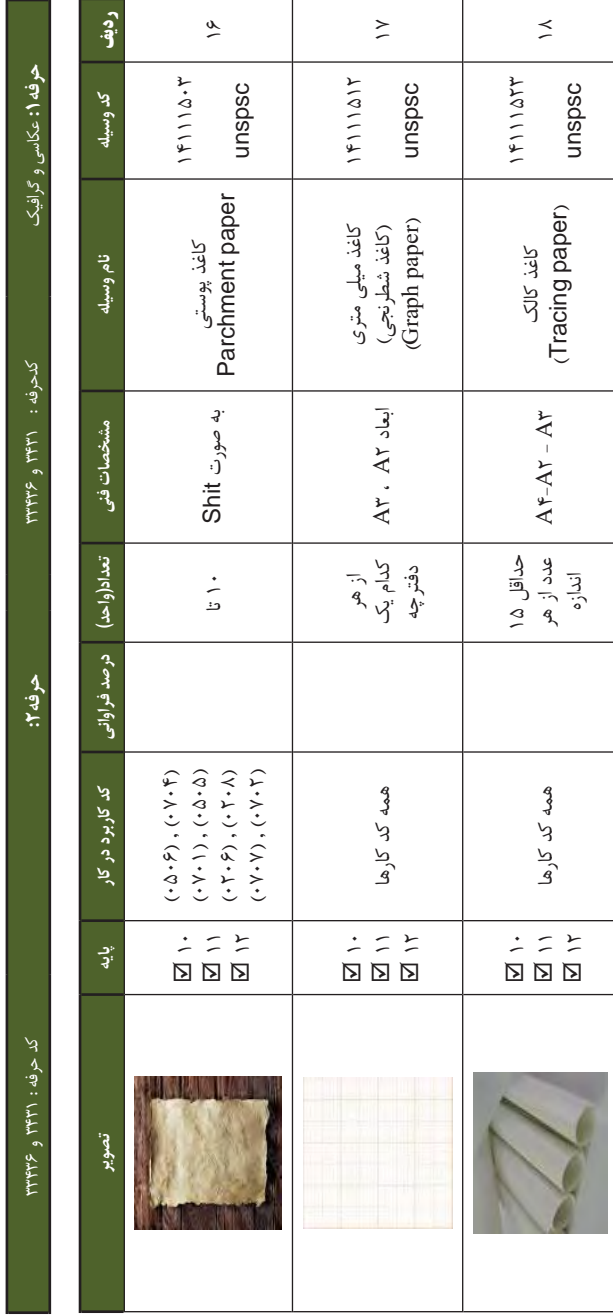 حرفه ۱: عکاسی و گرافیک
کدحرفه : ۳۴۳۱ و ۳۳۴۳۶
حرفه ۲:
کد حرفه : ۳۴۳۱ و ۳۳۴۳۶
ردیف
کد وسیله
نام وسیله
مشخصات فنی
تعداد(واحد)
درصد فراوانی
کد کاربرد در کار
پایه
تصویر
۱۶
۱۴۱۱۱۵۰۳
unspsc
کاغذ پوستی
Parchment paper
به صورت Shit
۱۰ تا
(۰۵۰۶) , (۰۷۰۴)
(۰۷۰۱) , (۰۵۰۵)
(۰۲۰۶) , (۰۲۰۸)
(۰۷۰۷) , (۰۷۰۲)
☑ ۱۰
☑ ۱۱
☑ ۱۲
۱۷
۱۴۱۱۱۵۱۲
unspsc
کاغذ میلی متری
(کاغذ شطرنجی)
(Graph paper)
ابعاد A۳ ، A۲
از هر
کدام یک
دفترچه
همه کد کارها
☑ ۱۰
☑ ۱۱
☑ ۱۲
۱۸
۱۴۱۱۱۵۲۳
unspsc
کاغذ کالک
(Tracing paper)
A۴-A۲ - A۳
حداقل ۱۵
عدد از هر
اندازه
همه کد کارها
☑ ۱۰
☑ ۱۱
☑ ۱۲